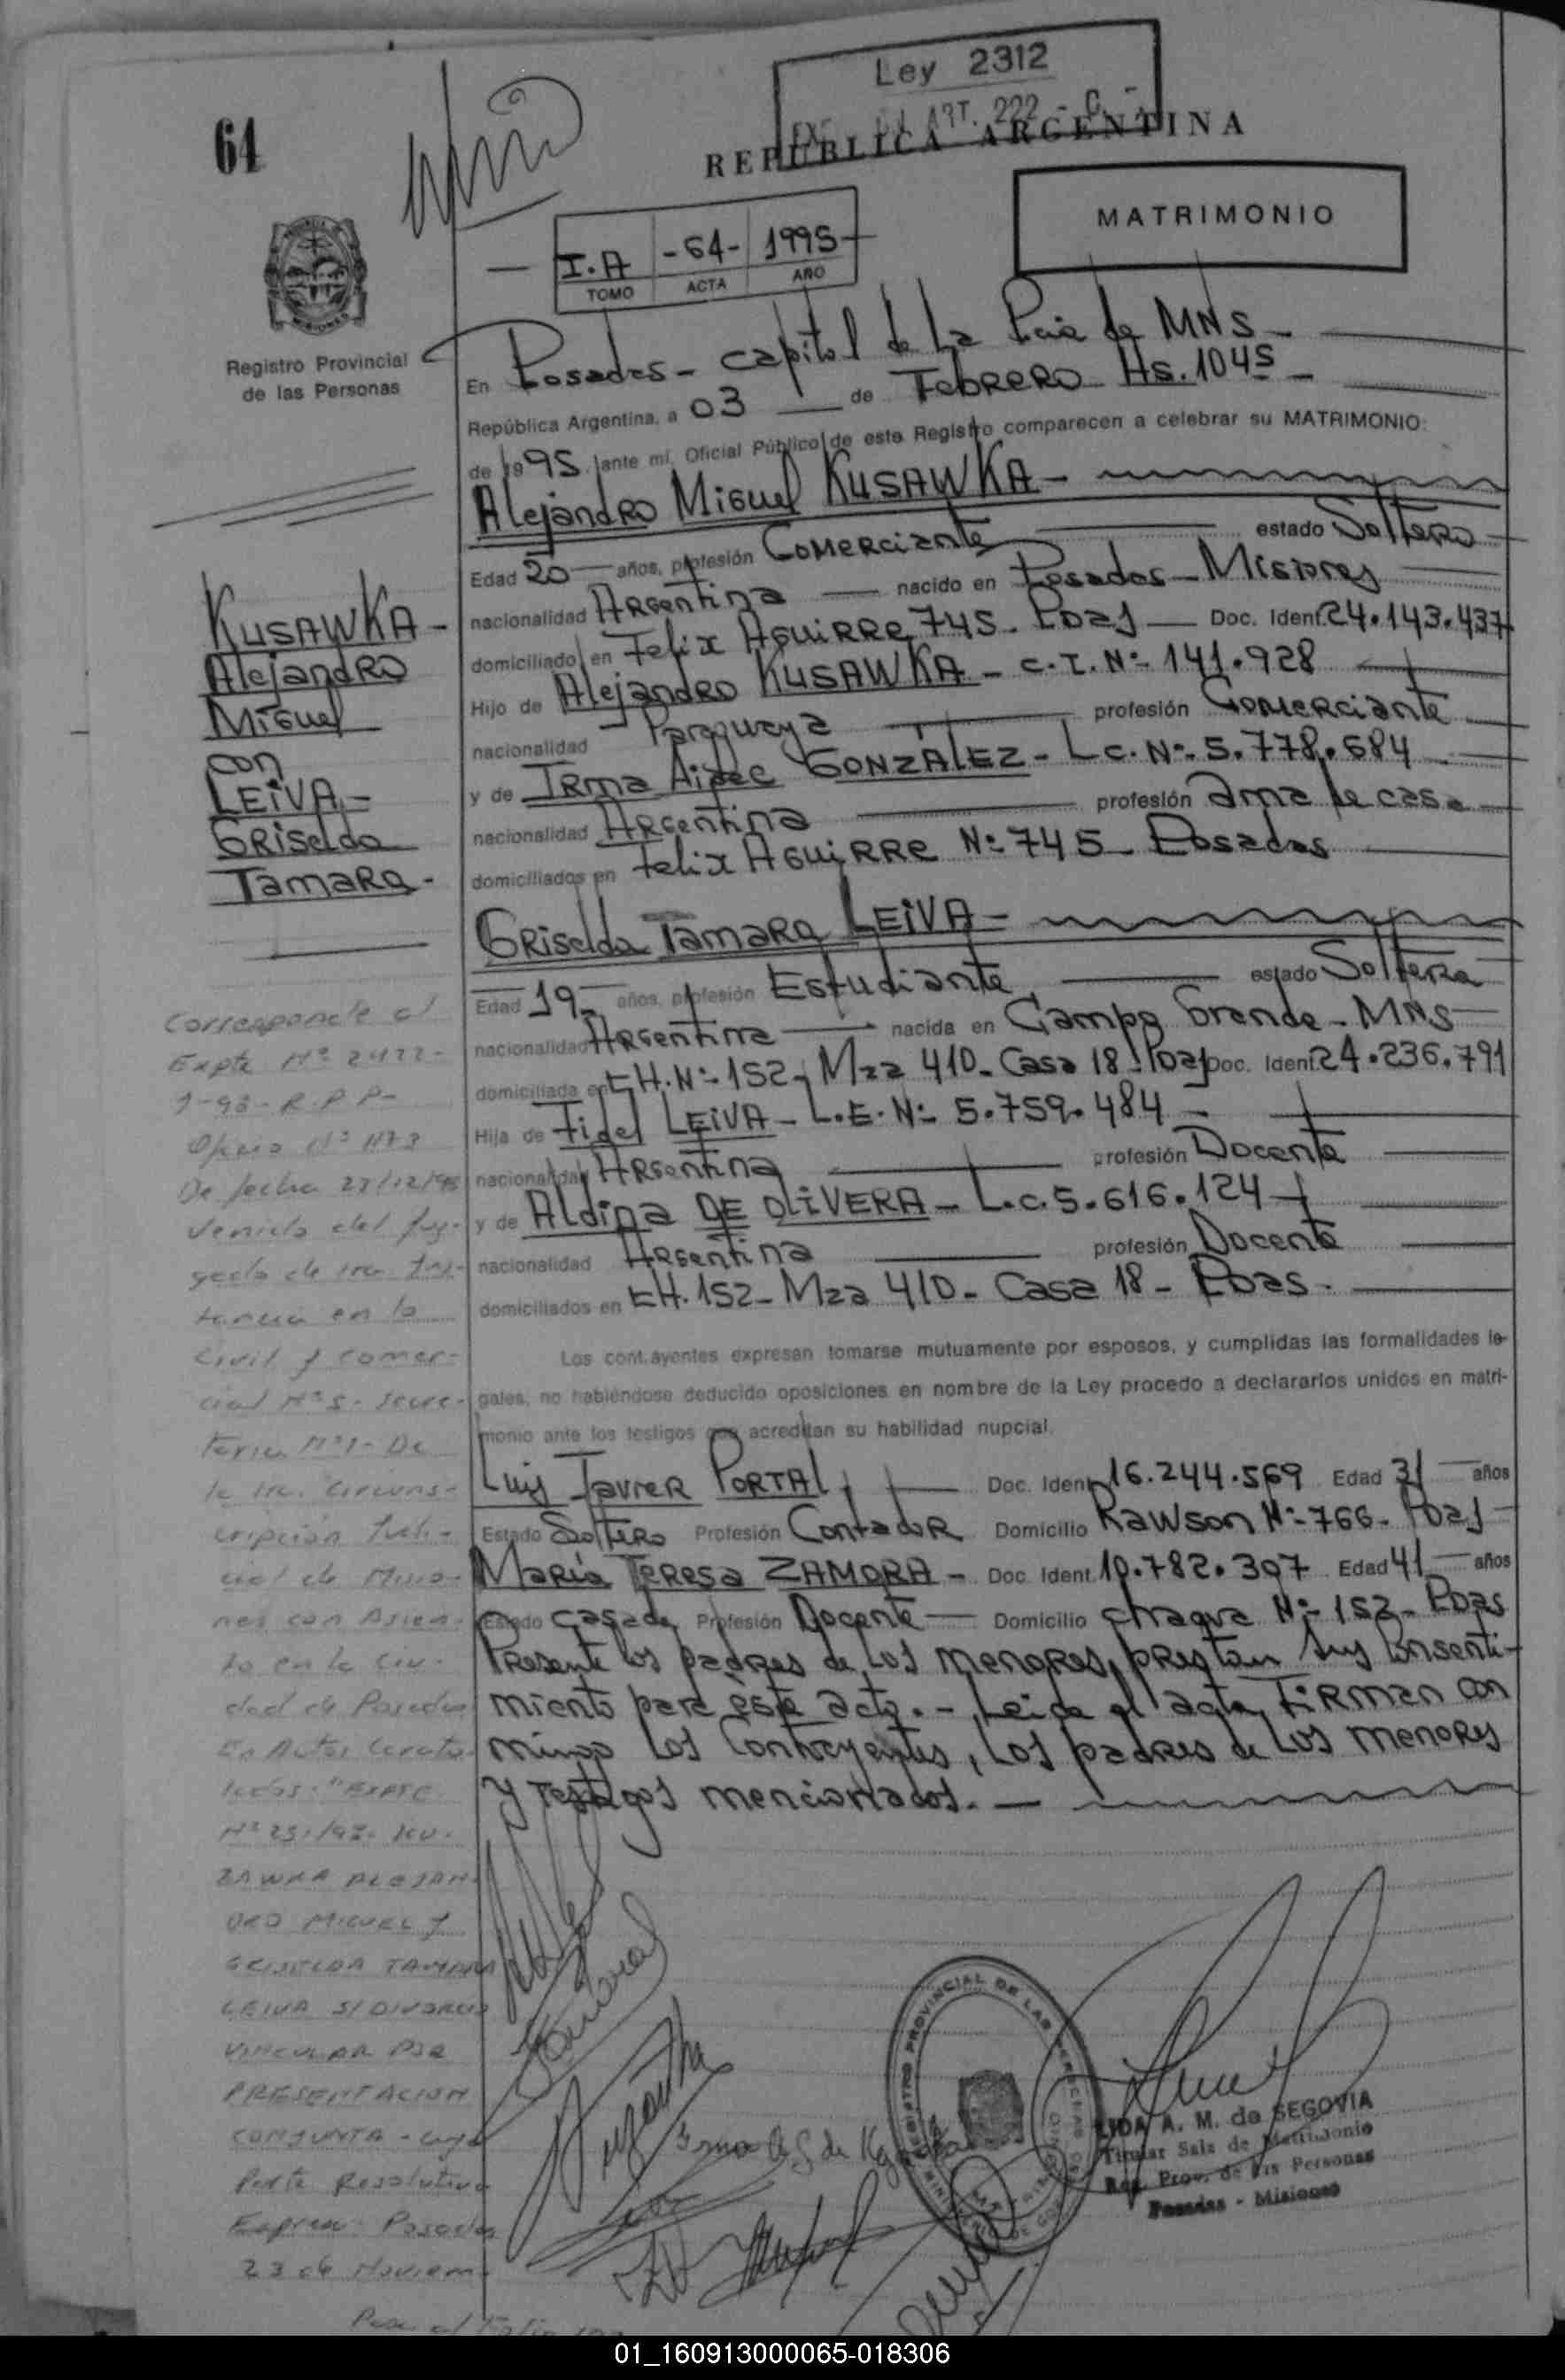 Ley 2312
ART. 222 - C -
64
REPUBLICA ARGENTINA
MATRIMONIO
I.A -64- 1995
TOMO ACTA AÑO
Registro Provincial
de las Personas
En Posadas - capital de La Pcia de MNS -
República Argentina, a 03 de Febrero Hs. 1045 -
de 1995 ante mí, Oficial Público de este Registro comparecen a celebrar su MATRIMONIO:
Alejandro Miguel KUSAWKA -
Edad 20 años, profesión Comerciante estado Soltero
nacionalidad Argentina nacido en Posadas - Misiones
domiciliado en Felix Aguirre 745 - Pdas Doc. Ident. 24.143.437
Hijo de Alejandro KUSAWKA - C.I. Nº 141.928
nacionalidad Paraguaya profesión Comerciante
y de Irma Aidee GONZALEZ - L.C. Nº 5.778.684
nacionalidad Argentina profesión ama de casa
domiciliados en Felix Aguirre Nº 745 - Posadas
Griselda Tamara LEIVA -
Edad 19 años, profesión Estudiante estado Soltera
nacionalidad Argentina nacida en Campo Grande - MNS
domiciliada en CH. Nº 152 - Mza 410 - Casa 18 - Pdas Doc. Ident. 24.236.791
Hija de Fidel LEIVA - L.E. Nº 5.759.484 -
nacionalidad Argentina profesión Docente
y de Aldina DE OLIVERA - L.C. 5.616.124
nacionalidad Argentina profesión Docente
domiciliados en CH. 152 - Mza 410 - Casa 18 - Pdas.
Los contrayentes expresan tomarse mutuamente por esposos, y cumplidas las formalidades le-
gales, no habiéndose deducido oposiciones en nombre de la Ley procedo a declararlos unidos en matri-
monio ante los testigos que acreditan su habilidad nupcial.
Luis Javier PORTAL Doc. Ident. 16.244.569 Edad 31 años
Estado Soltero Profesión Contador Domicilio Rawson Nº 766 - Pdas
María Teresa ZAMORA - Doc. Ident. 10.782.307 Edad 41 años
Estado Casada Profesión Docente Domicilio Chacra Nº 152 - Pdas
Presente los padres de los menores, prestan sus Consenti-
miento para éste acto. - Leida el acta, Firman con
migo los Contrayentes, los padres de los menores
y testigos mencionados. -
KUSAWKA -
Alejandro
Miguel
con
LEIVA -
Griselda
Tamara -
Corresponde al
Expte Nº 2422-
Oficio Nº 1173
De fecha 27/12/95
venido del Juz-
gado de 1ra. Ins-
tancia en lo
Civil y Comer-
cial Nº 5 - Secre-
taria Nº 1 - De
la 1ra. Circuns-
cripción Judi-
cial de Misio-
nes con Asien-
to en la Ciu-
dad de Posadas
En Autos Caratu-
lados: "EXPTE
KU-
ZAWKA ALEJAN-
DRO MIGUEL Y
GRISELDA TAMARA
LEIVA S/ DIVORCIO
VINCULAR POR
PRESENTACION
CONJUNTA - cuya
Parte Resolutiva
Expresa: Posadas
23 de Noviem-
Pasa al Folio
REGISTRO PROVINCIAL DE LAS PERSONAS
LIDA A. M. de SEGOVIA
Titular Sala de Matrimonio
Reg. Prov. de las Personas
Posadas - Misiones
01_160913000065-018306